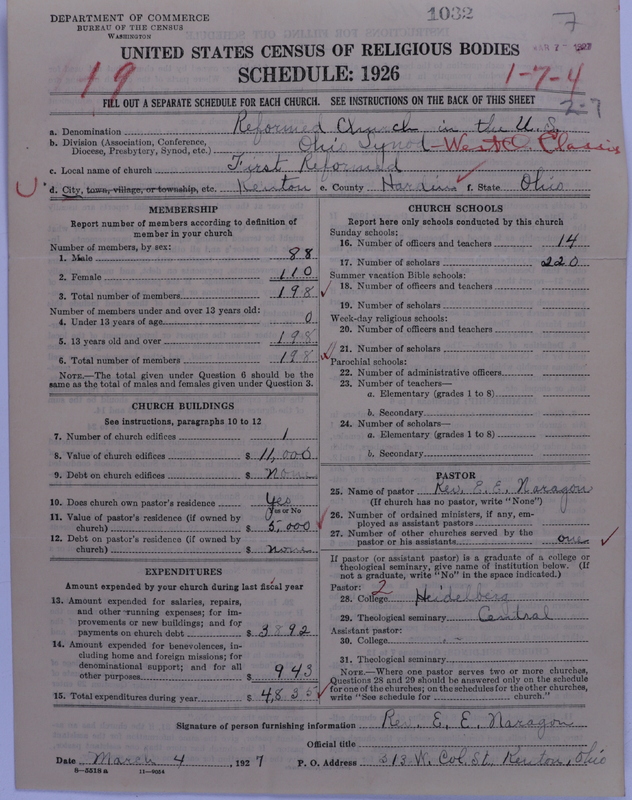 DEPARTMENT OF COMMERCE
BUREAU OF THE CENSUS
WASHINGTON
1032
7
UNITED STATES CENSUS OF RELIGIOUS BODIES
SCHEDULE: 1926
19
1-7-4
FILL OUT A SEPARATE SCHEDULE FOR EACH CHURCH. SEE INSTRUCTIONS ON THE BACK OF THIS SHEET
2-7
a. Denomination Reformed Church in the U.S.
b. Division (Association, Conference, Diocese, Presbytery, Synod, etc.) Ohio Synod - West O. Classis
c. Local name of church First Reformed
d. City, town, village, or township, etc. Kenton e. County Hardin f. State Ohio
MEMBERSHIP
Report number of members according to definition of
member in your church
Number of members, by sex:
1. Male 88
2. Female 110
3. Total number of members 198
Number of members under and over 13 years old:
4. Under 13 years of age 0
5. 13 years old and over 198
6. Total number of members 198
NOTE.—The total given under Question 6 should be the
same as the total of males and females given under Question 3.
CHURCH BUILDINGS
See instructions, paragraphs 10 to 12
7. Number of church edifices 1
8. Value of church edifices $ 11,000
9. Debt on church edifices $ None
10. Does church own pastor's residence Yes
Yes or No
11. Value of pastor's residence (if owned by
church) $ 5,000
12. Debt on pastor's residence (if owned by
church) $ none
EXPENDITURES
Amount expended by your church during last fiscal year
13. Amount expended for salaries, repairs,
and other running expenses; for im-
provements or new buildings; and for
payments on church debt $ 3892
14. Amount expended for benevolences, in-
cluding home and foreign missions; for
denominational support; and for all
other purposes $ 943
15. Total expenditures during year $ 4,835
CHURCH SCHOOLS
Report here only schools conducted by this church
Sunday schools:
16. Number of officers and teachers 14
17. Number of scholars 220
Summer vacation Bible schools:
18. Number of officers and teachers
19. Number of scholars
Week-day religious schools:
20. Number of officers and teachers
21. Number of scholars
Parochial schools:
22. Number of administrative officers
23. Number of teachers—
a. Elementary (grades 1 to 8)
b. Secondary
24. Number of scholars—
a. Elementary (grades 1 to 8)
b. Secondary
PASTOR
25. Name of pastor Rev. E. E. Naragon
(If church has no pastor, write "None")
26. Number of ordained ministers, if any, em-
ployed as assistant pastors
27. Number of other churches served by the
pastor or his assistants one
If pastor (or assistant pastor) is a graduate of a college or
theological seminary, give name of institution below. (If
not a graduate, write "No" in the space indicated.)
Pastor: 2
28. College Heidelberg
29. Theological seminary Central
Assistant pastor:
30. College
31. Theological seminary
NOTE.—Where one pastor serves two or more churches,
Questions 28 and 29 should be answered only on the schedule
for one of the churches; on the schedules for the other churches,
write "See schedule for church."
Signature of person furnishing information Rev. E. E. Naragon
Official title
Date March 4, 1927 P. O. Address 313 W. Col. St. Kenton, Ohio
8-5518a 11-9054